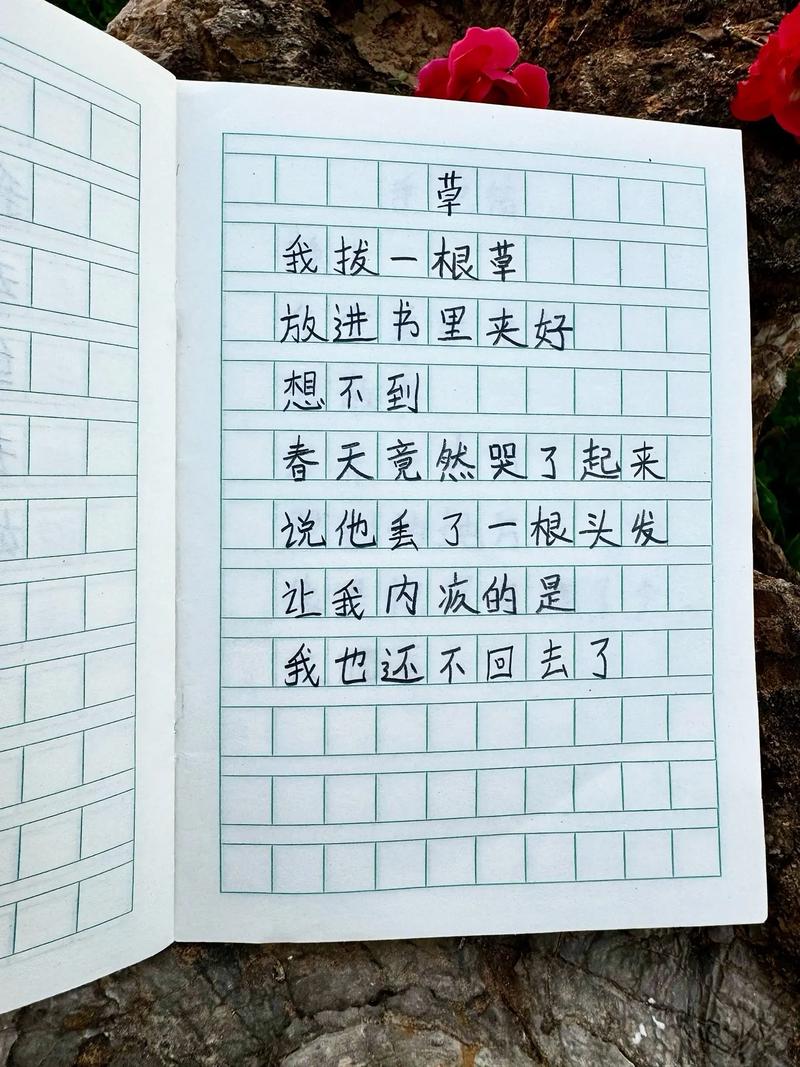 草
我拔一根草
放进书里夹好
想不到
春天竟然哭了起来
说他丢了一根头发
让我内疚的是
我也还不回去了